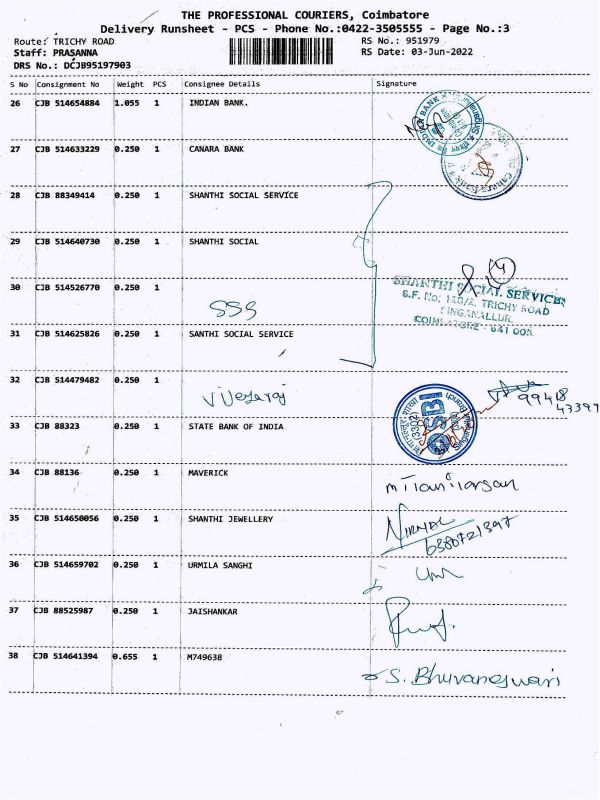 THE PROFESSIONAL COURIERS, Coimbatore
Delivery Runsheet - PCS - Phone No.:0422-3505555 - Page No.:3
Route: TRICHY ROAD
RS No.: 951979
Staff: PRASANNA
RS Date: 03-Jun-2022
DRS No.: DCJB95197903
S No Consignment No Weight PCS Consignee Details Signature
26 CJB 514654884 1.055 1 INDIAN BANK.
27 CJB 514633229 0.250 1 CANARA BANK
28 CJB 88349414 0.250 1 SHANTHI SOCIAL SERVICE
29 CJB 514640730 0.250 1 SHANTHI SOCIAL
30 CJB 514526770 0.250 1 SSS
SHANTHI SOCIAL SERVICES
S.F. No; TRICHY ROAD
SINGANALLUR,
COIMBATORE - 641 005
31 CJB 514625826 0.250 1 SANTHI SOCIAL SERVICE
32 CJB 514479482 0.250 1
33 CJB 88323 0.250 1 STATE BANK OF INDIA
SBI
34 CJB 88136 0.250 1 MAVERICK
35 CJB 514650056 0.250 1 SHANTHI JEWELLERY NIRMAL
6380721397
36 CJB 514659702 0.250 1 URMILA SANGHI
37 CJB 88525987 0.250 1 JAISHANKAR
38 CJB 514641394 0.655 1 M749638 S. Bhuvaneswari